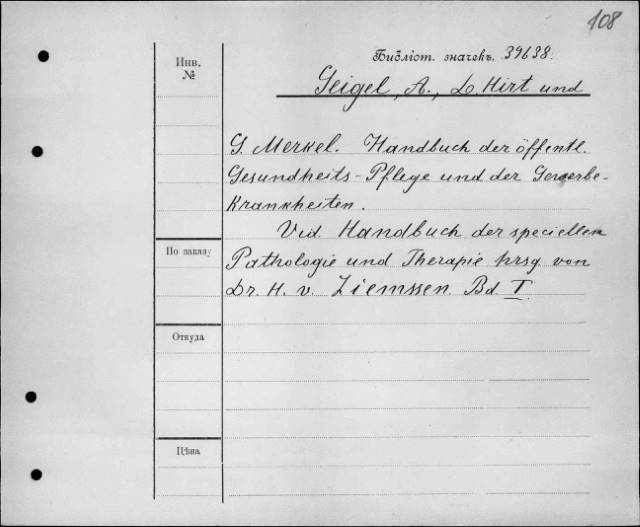 108
Инв.
№
Библіот. значекъ. 39638.
Geigel, A., L. Hirt und
G. Merkel. Handbuch der öffentl.
Gesundheits-Pflege und der Gewerbe-
Krankheiten.
Vid. Handbuch der speciellen
По заказу
Pathologie und Therapie hrsg von
Dr. H. v. Ziemssen. Bd. I.
Откуда
Цѣна